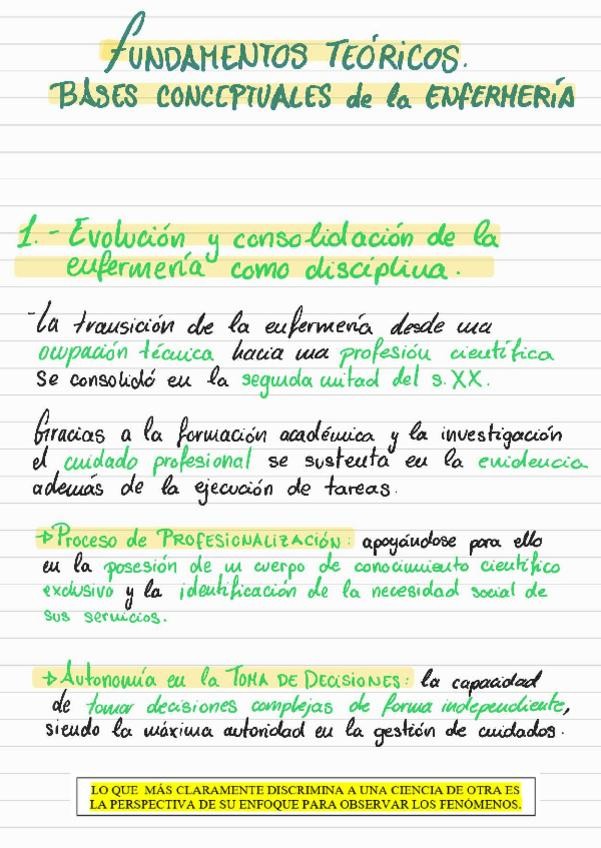 FUNDAMENTOS TEÓRICOS.
BASES CONCEPTUALES de la ENFERMERÍA
1.- Evolución y consolidación de la
enfermería como disciplina.
-La transición de la enfermería desde una
ocupación técnica hacia una profesión científica
se consolidó en la segunda mitad del s. XX.
Gracias a la formación académica y la investigación
el cuidado profesional se sustenta en la evidencia
además de la ejecución de tareas.
→ Proceso de PROFESIONALIZACIÓN: apoyándose para ello
en la posesión de un cuerpo de conocimiento científico
exclusivo y la identificación de la necesidad social de
sus servicios.
→ Autonomía en la TOMA DE DECISIONES: la capacidad
de tomar decisiones complejas de forma independiente,
siendo la máxima autoridad en la gestión de cuidados.
LO QUE MÁS CLARAMENTE DISCRIMINA A UNA CIENCIA DE OTRA ES
LA PERSPECTIVA DE SU ENFOQUE PARA OBSERVAR LOS FENÓMENOS.